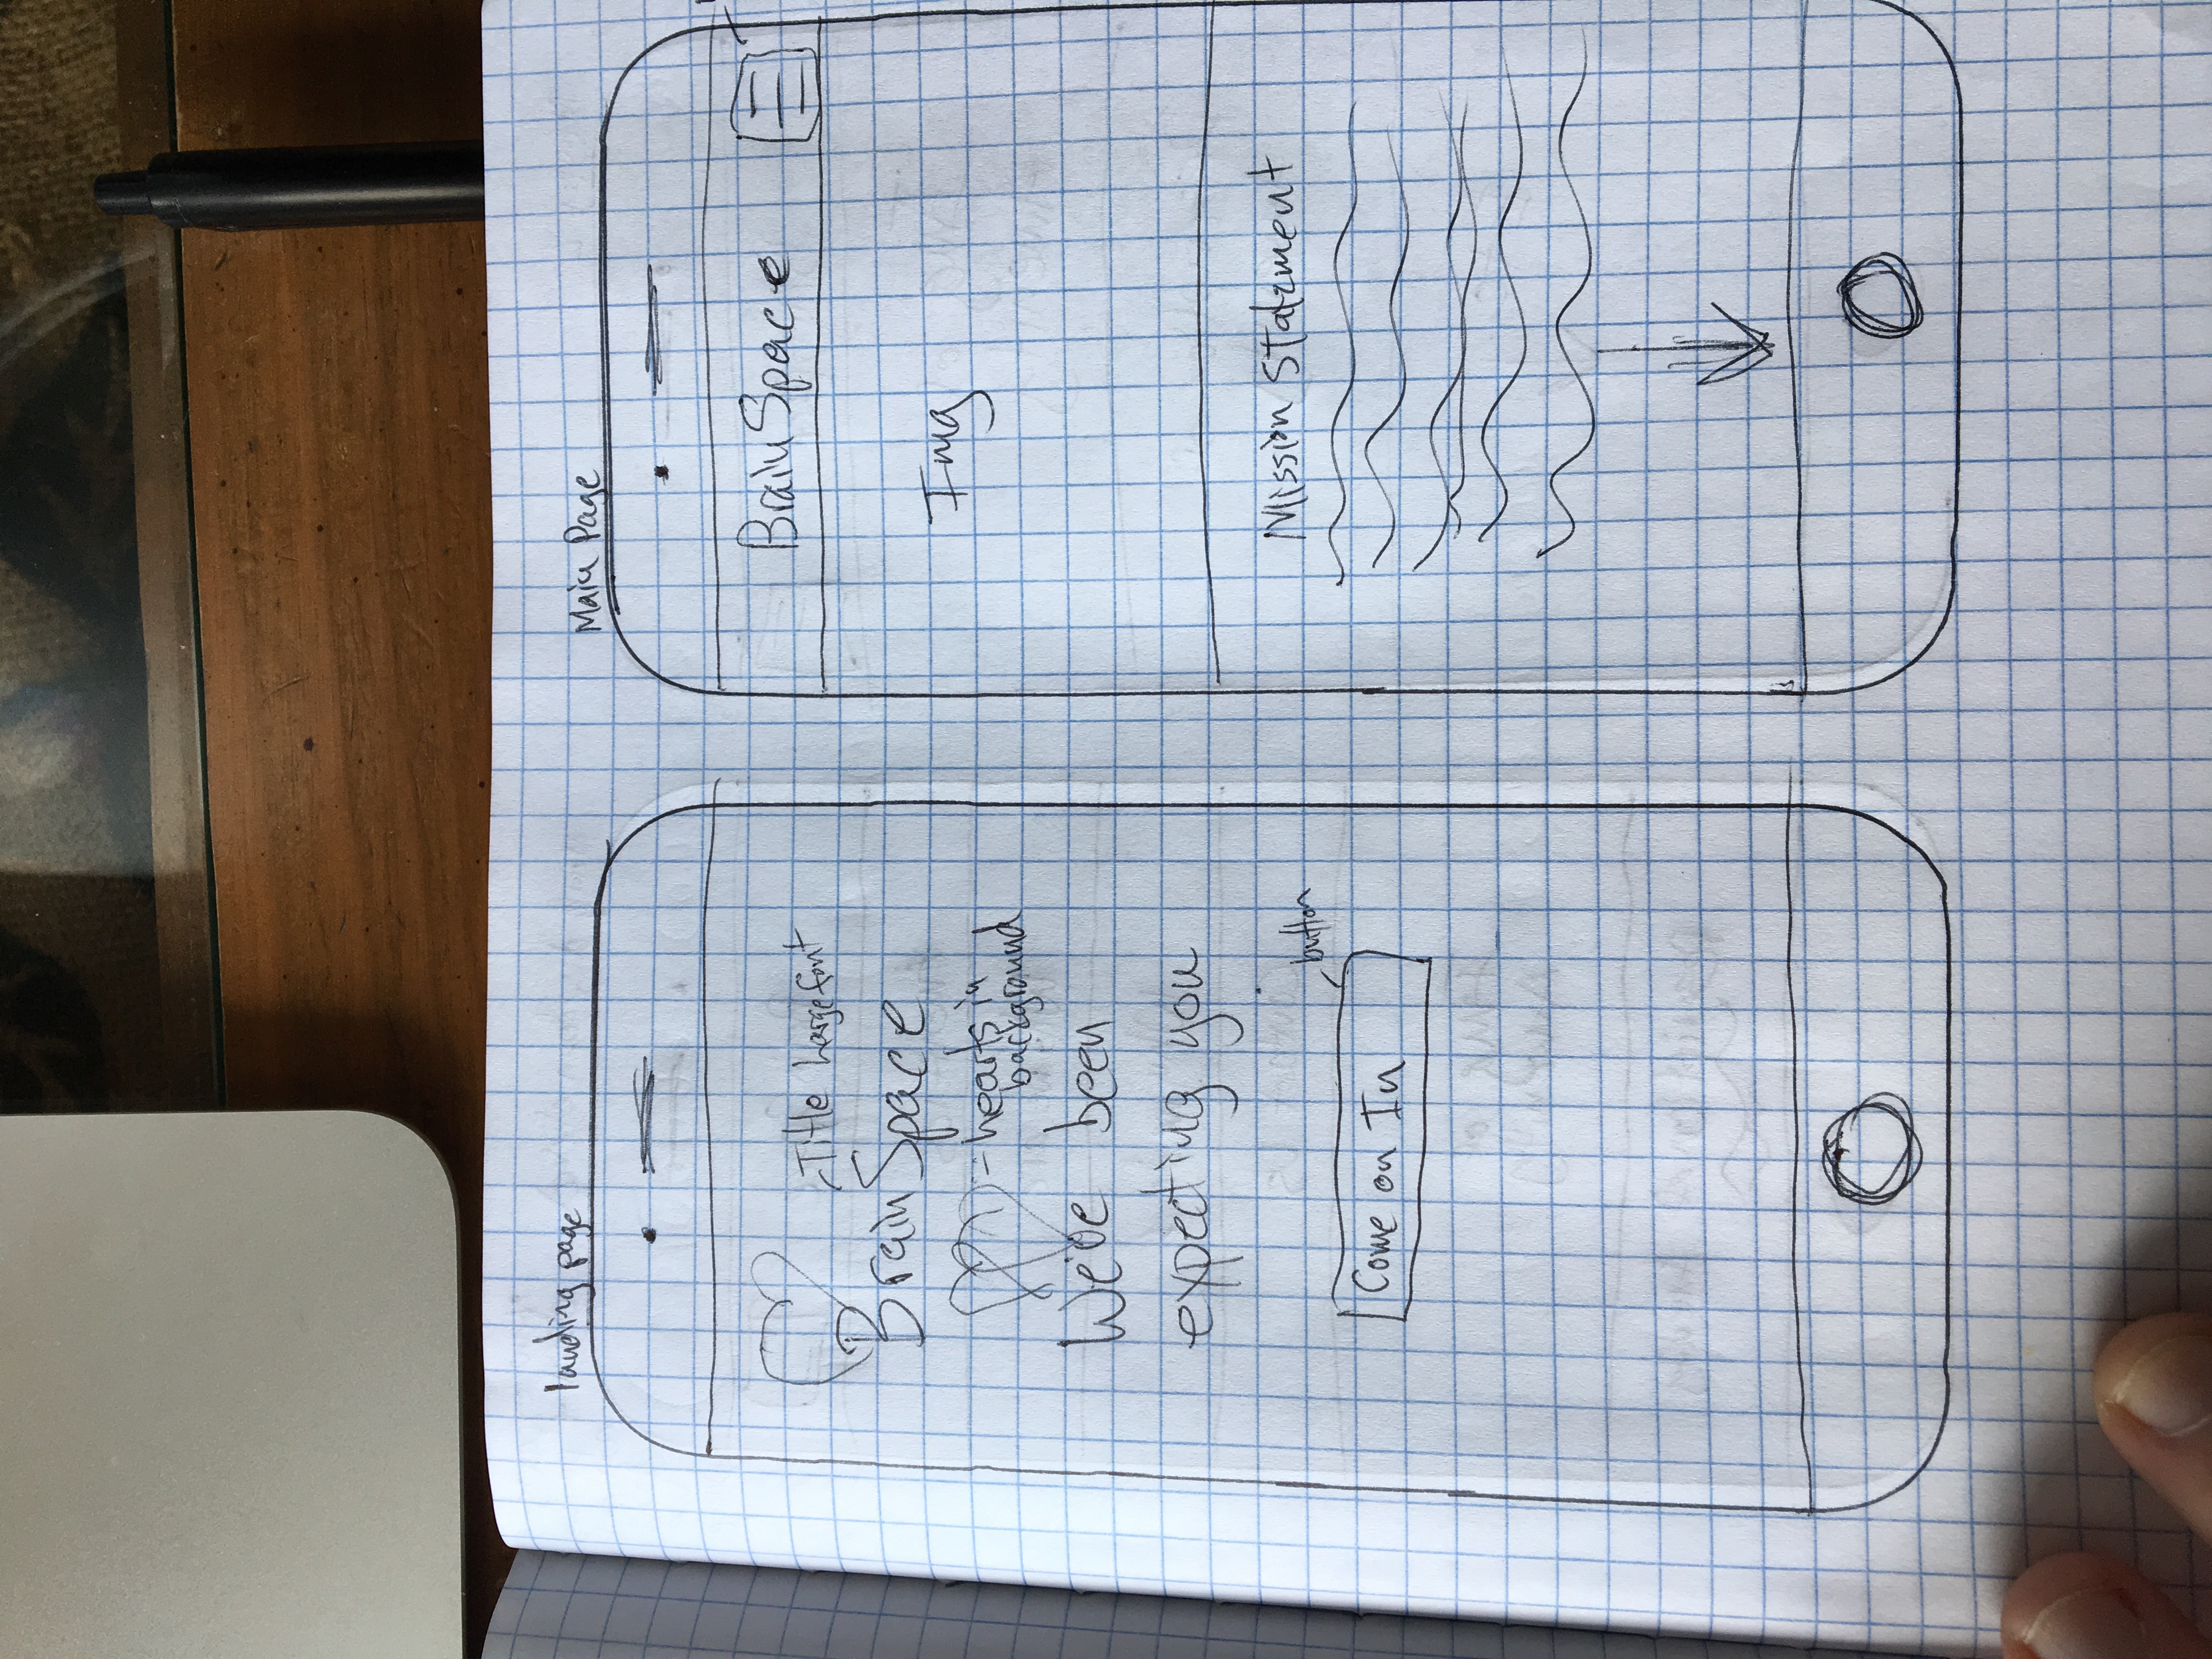 landing page
Title Large font
BrainSpace
hearts in
background
We've been
expecting you
button
Come on In
Main Page
BrainSpace
Img
Mission Statement